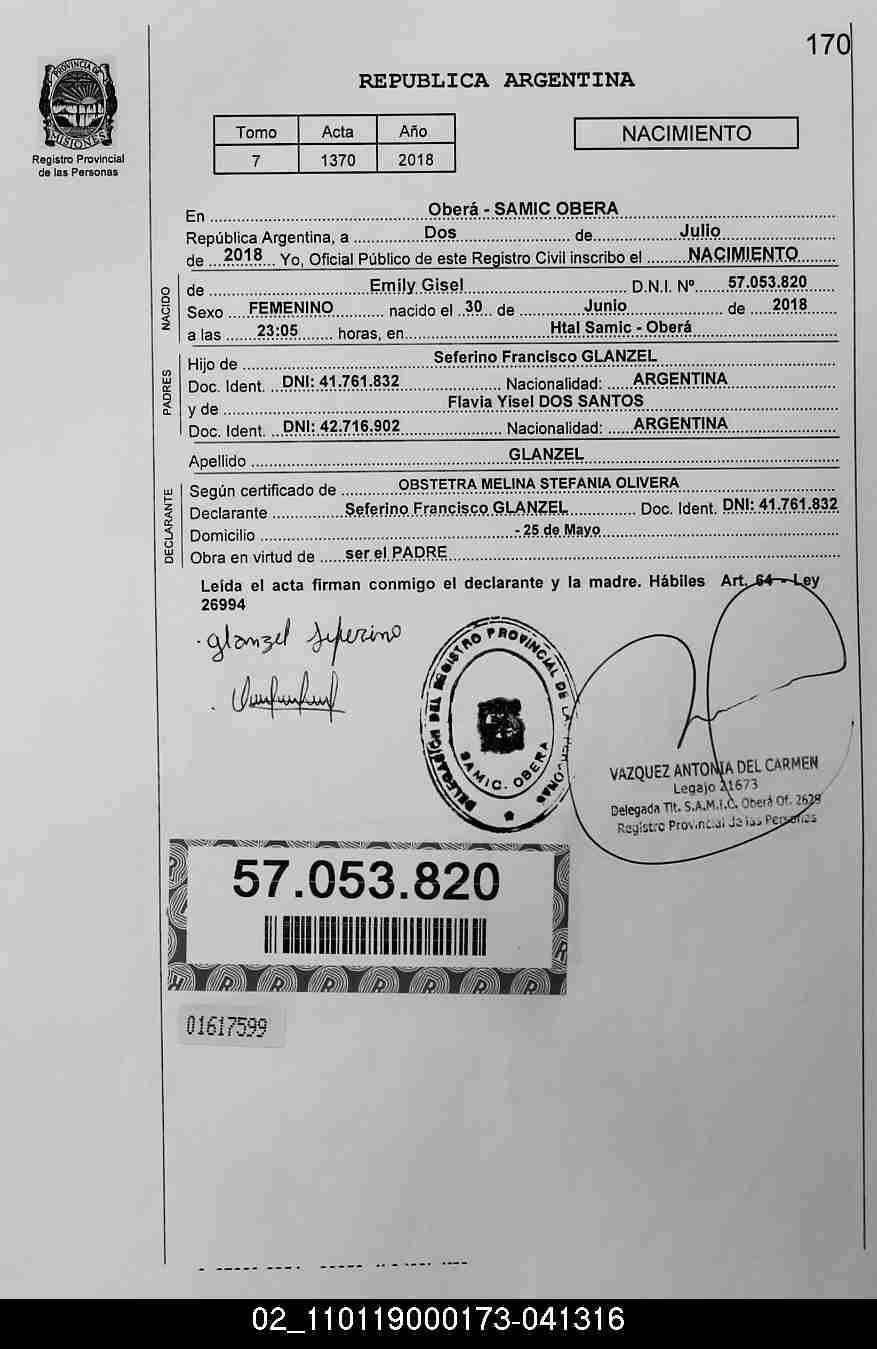 170
REPUBLICA ARGENTINA
PROVINCIA DE
MISIONES
Registro Provincial
de las Personas
Tomo Acta Año
7 1370 2018
NACIMIENTO
En Oberá - SAMIC OBERA
República Argentina, a Dos de Julio
de 2018 Yo, Oficial Público de este Registro Civil inscribo el NACIMIENTO
NACIDO
de Emily Gisel D.N.I. Nº 57.053.820
Sexo FEMENINO nacido el 30 de Junio de 2018
a las 23:05 horas, en Htal Samic - Oberá
PADRES
Hijo de Seferino Francisco GLANZEL
Doc. Ident. DNI: 41.761.832 Nacionalidad: ARGENTINA
y de Flavia Yisel DOS SANTOS
Doc. Ident. DNI: 42.716.902 Nacionalidad: ARGENTINA
Apellido GLANZEL
DECLARANTE
Según certificado de OBSTETRA MELINA STEFANIA OLIVERA
Declarante Seferino Francisco GLANZEL Doc. Ident. DNI: 41.761.832
Domicilio - 25 de Mayo
Obra en virtud de ser el PADRE
Leída el acta firman conmigo el declarante y la madre. Hábiles Art. 64 - Ley
26994
Glanzel Seferino
DELEGACIÓN DEL REGISTRO PROVINCIAL DE LAS PERSONAS
SAMIC. OBERA
VAZQUEZ ANTONIA DEL CARMEN
Legajo 21673
Delegada Tit. S.A.M.I.C. Oberá Of. 2629
Registro Provincial de las Personas
57.053.820
01617599
02_110119000173-041316